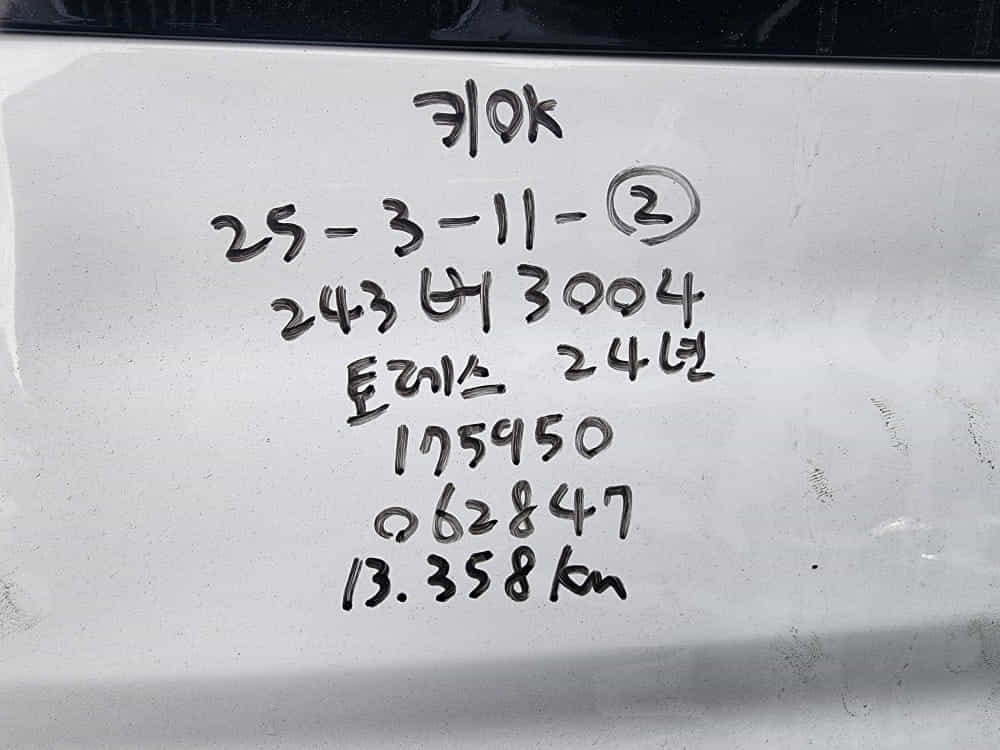 키OK
25-3-11-②
243버3004
토레스 24년
175950
062847
13.358km